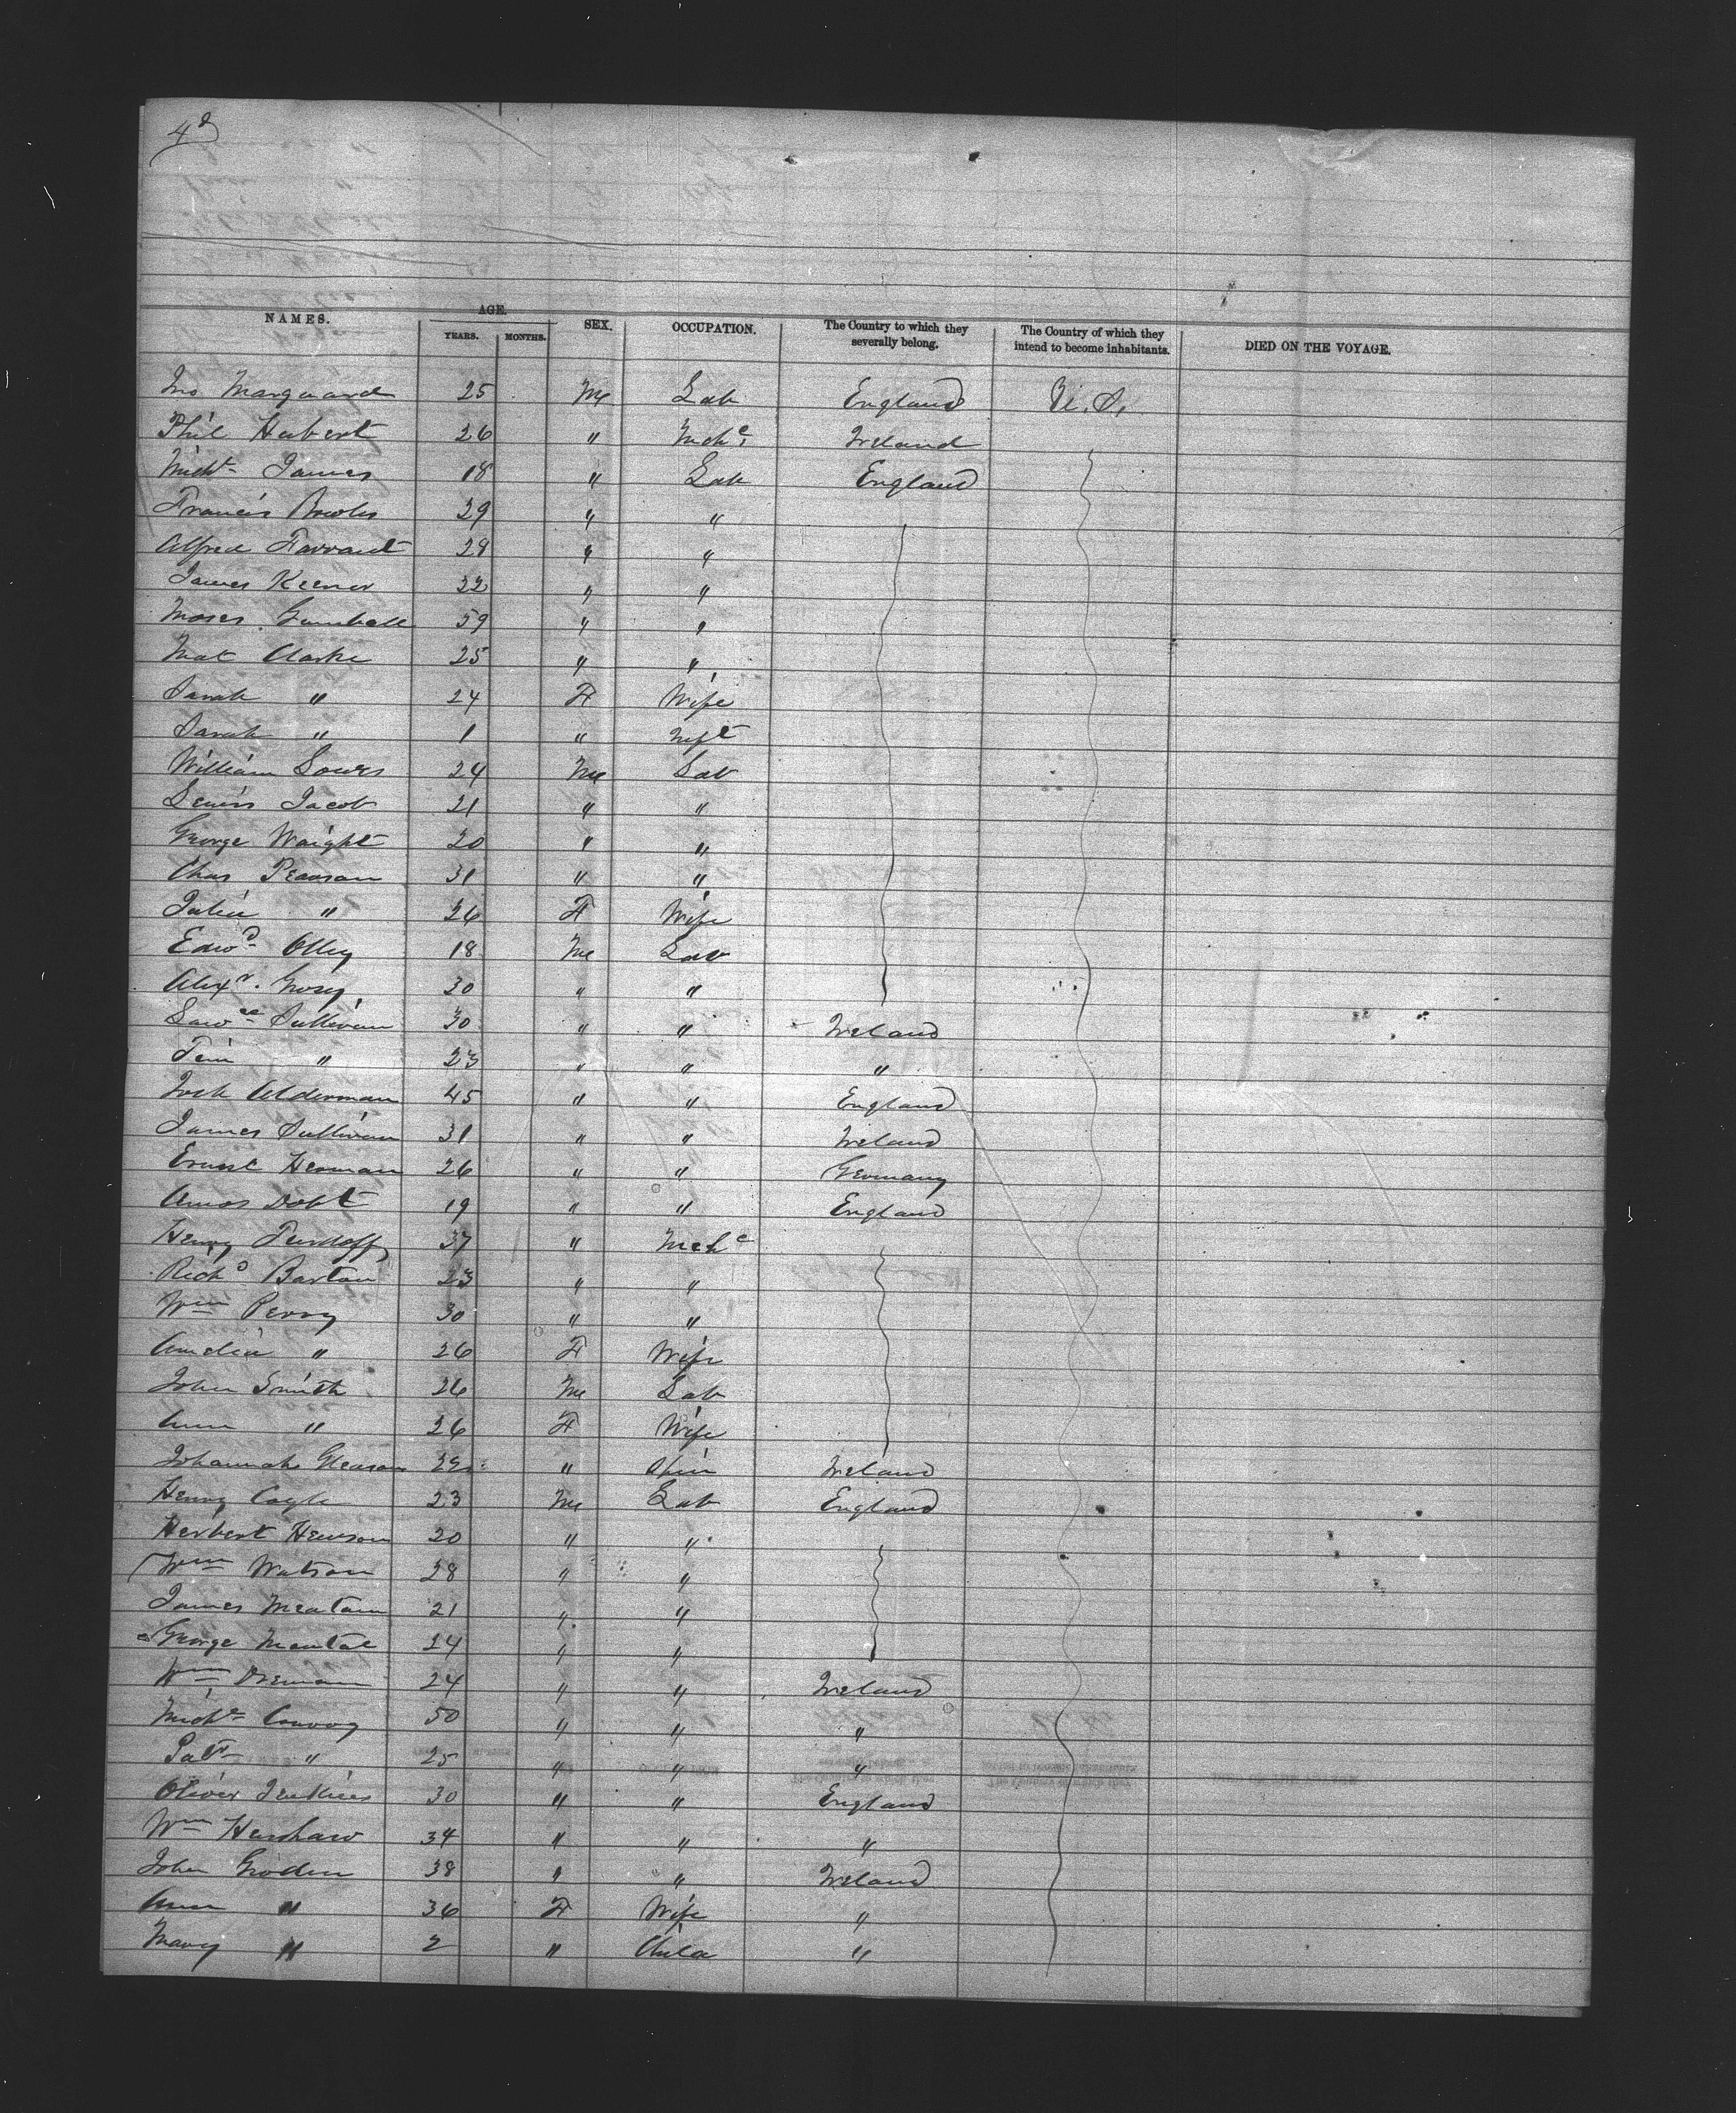 NAMES. AGE. YEARS. MONTHS. SEX. OCCUPATION. The Country to which they severally belong. The Country of which they intend to become inhabitants. DIED ON THE VOYAGE.
Jno Marquard 25 M Lab England U.S.
Phil Hubert 26 " Mche Ireland
Michl James 18 " Lab England
Francis 29 " "
Alfred Farrant 28 " "
James Keenor 22 " "
Moses 59 " "
Mat Clarke 25 " "
Sarah " 24 F Wife
Sarah " 1 " Inft
William 24 M Lab
Lewis Jacob 21 " "
George Waight 20 " "
Chas Pearson 31 " "
Julia " 26 F Wife
Edwd Olley 18 M Lab
Alexr 30 " "
Lawce Sullivan 30 " " Ireland
Tim " 23 " " "
Alderman 45 " " England
James Sullivan 31 " " Ireland
Ernest Herman 26 " " Germany
Amos 19 " " England
Henry 37 " Mche
Richd Barton 23 " "
Wm Perry 30 " "
Amelia " 26 F Wife
John Smith 26 M Lab
Ann " 26 F Wife
Johannah Gleason " Spin Ireland
Henry Coyle 23 M Lab England
Herbert Hewson 20 " "
Wm Watson 28 " "
James 21 " "
George 24 " "
Wm 24 " " Ireland
Michl Conroy 50 " " "
Patk " 25 " " "
Oliver Jenkins 30 " " England
Wm Henshaw 34 " " "
John Grodin 38 " " Ireland
Ann " 36 F Wife "
Mary " 2 " Child "